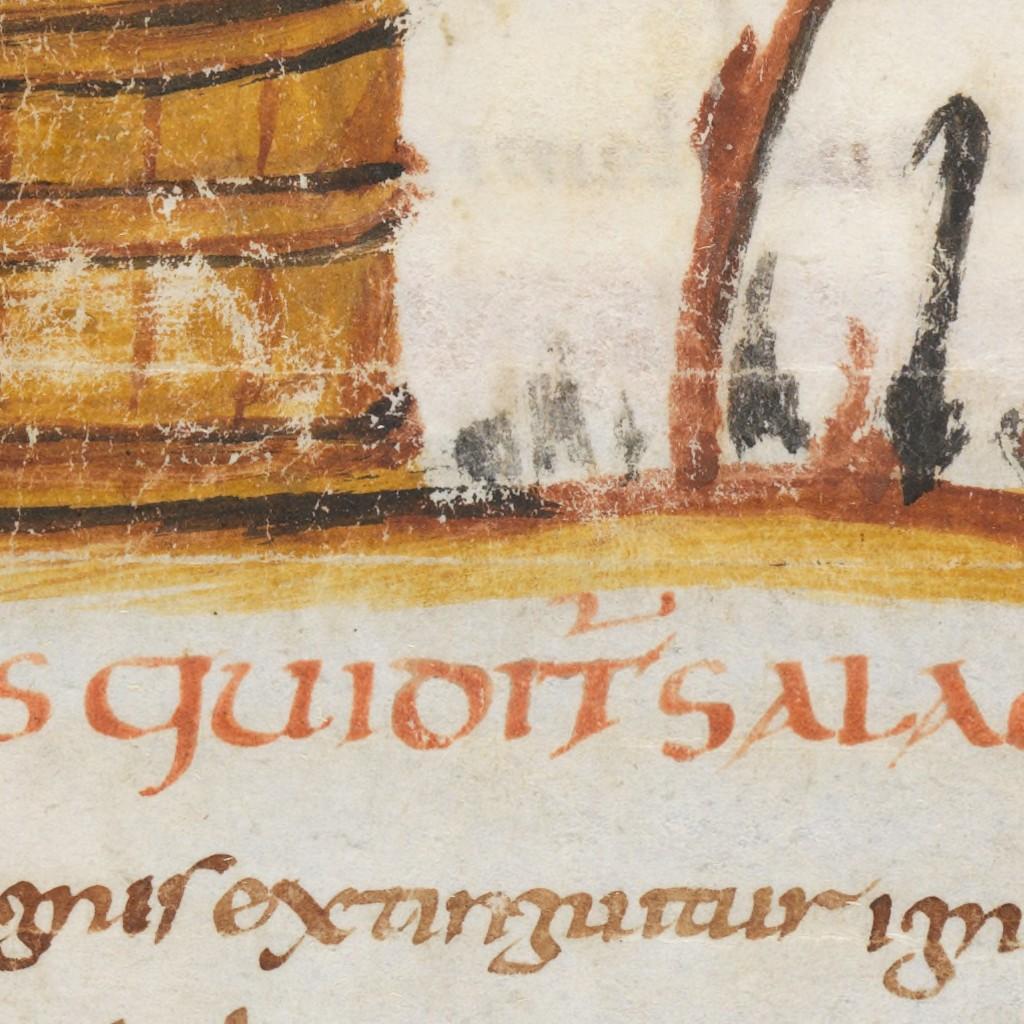 S QUIDIT̃ SALA
gnis extinguitur ign